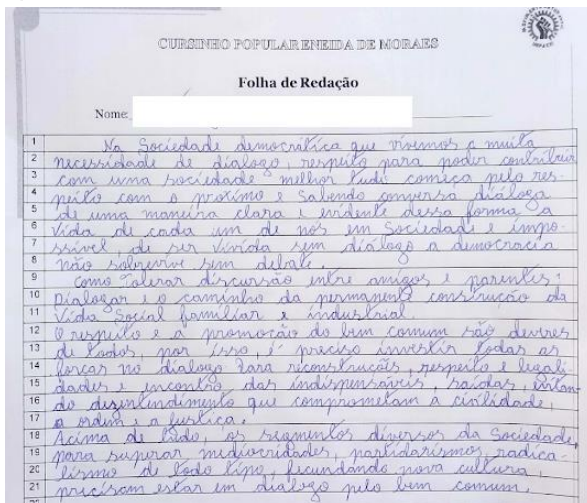 CURSINHO POPULAR ENEIDA DE MORAES
Folha de Redação
Nome:
1 Na Sociedade democrática que vivemos a muita
2 necessidade de dialogo, respeito para poder contribuir
3 com uma sociedade melhor tudo começa pelo res-
4 peito com o proximo e Sabendo conversa diáloga
5 de uma maneira clara e evidente dessa forma a
6 vida de cada um de nos em Sociedade e impo-
7 ssável, de ser vivida sem diálogo a democracia
8 não sobrevive sem debate.
9 Como Tolerar discursão entre amigos e parentes;
10 Dialogar e o caminho da permanente construção da
11 Vida Social familiar e industrial.
12 O respeito e a promocão do bem comum são devires
13 de todos, por isso, é preciso investir todas as
14 forças no dialogo para reconstrucões, respeito e legali
15 dades e encontro das indispensáveis, saídas, evitan
16 do desentendimento que comprometam a civilidade,
17 a ordem e a justica.
18 Acima de tudo, os segmentos diversos da Sociedade,
19 para superar mediocridades, partidarismos, radica-
20 lismo de todo tipo, fecundando nova cultura,
21 precisam estar em diálogo pelo bem comum.